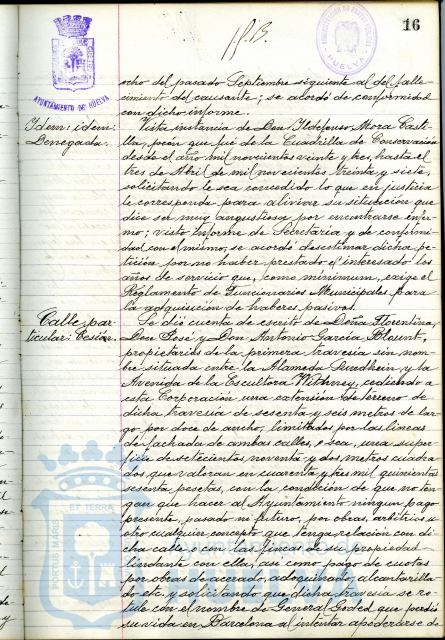 16
AYUNTAMIENTO DE HUELVA
HUELVA
ocho del pasado Septiembre siguiente al del falle-
cimiento del causante; se acordó de conformidad
con dicho informe.
Idem: idem:
Denegada.
Vista instancia de Don Ildefonso Mora Casti-
lla, peón que fué de la Cuadrilla de Conservación
desde el año mil novecientos veinte y tres, hasta el
tres de Abril de mil novecientos treinta y siete,
solicitando le sea concedido lo que en justicia
le corresponda para aliviar su situación que
dice ser muy angustiosa por encontrarse enfer-
mo; visto Informe de Secretaria y de conformi-
dad con el mismo, se acordó desestimar dicha pe-
tición por no haber prestado el interesado los
años de servicio que, como minimum, exige el
Reglamento de Funcionarios Municipales para
la adquisición de haberes pasivos.
Calle par-
ticular: Cesión.
Se dió cuenta de escrito de Doña Florentina,
Don José y Don Antonio Garcia Blount,
propietarios de la primera travesia sin nom-
bre situada entre la Alameda Sundheim y la
Avenida de la Escultora Withnney, cediendo a
esta Corporación una extensión de terreno de
dicha travesia de sesenta y seis metros de lar-
go por doce de ancho, limitados por las lineas
de fachada de ambas calles, o sea, una super-
ficie de setecientos noventa y dos metros cuadra-
dos que valoran en cuarenta y tres mil quinientas
sesenta pesetas, con la condición de que no ten-
gan que hacer al Ayuntamiento ningun pago
presente, pasado ni futuro, por obras, arbitrios u
otro cualquier concepto que tenga relación con di-
cha calle y con las fincas de su propiedad
lindante con ella, asi como pago de cuotas
por obras de acerado, adoquinado, alcantarilla-
do etc. y solicitando que dicha travesia se ro-
tule con el nombre de General Goded que perdió
su vida en Barcelona al intentar apoderarse de
PORTUS MARIS
ET TERRÆ